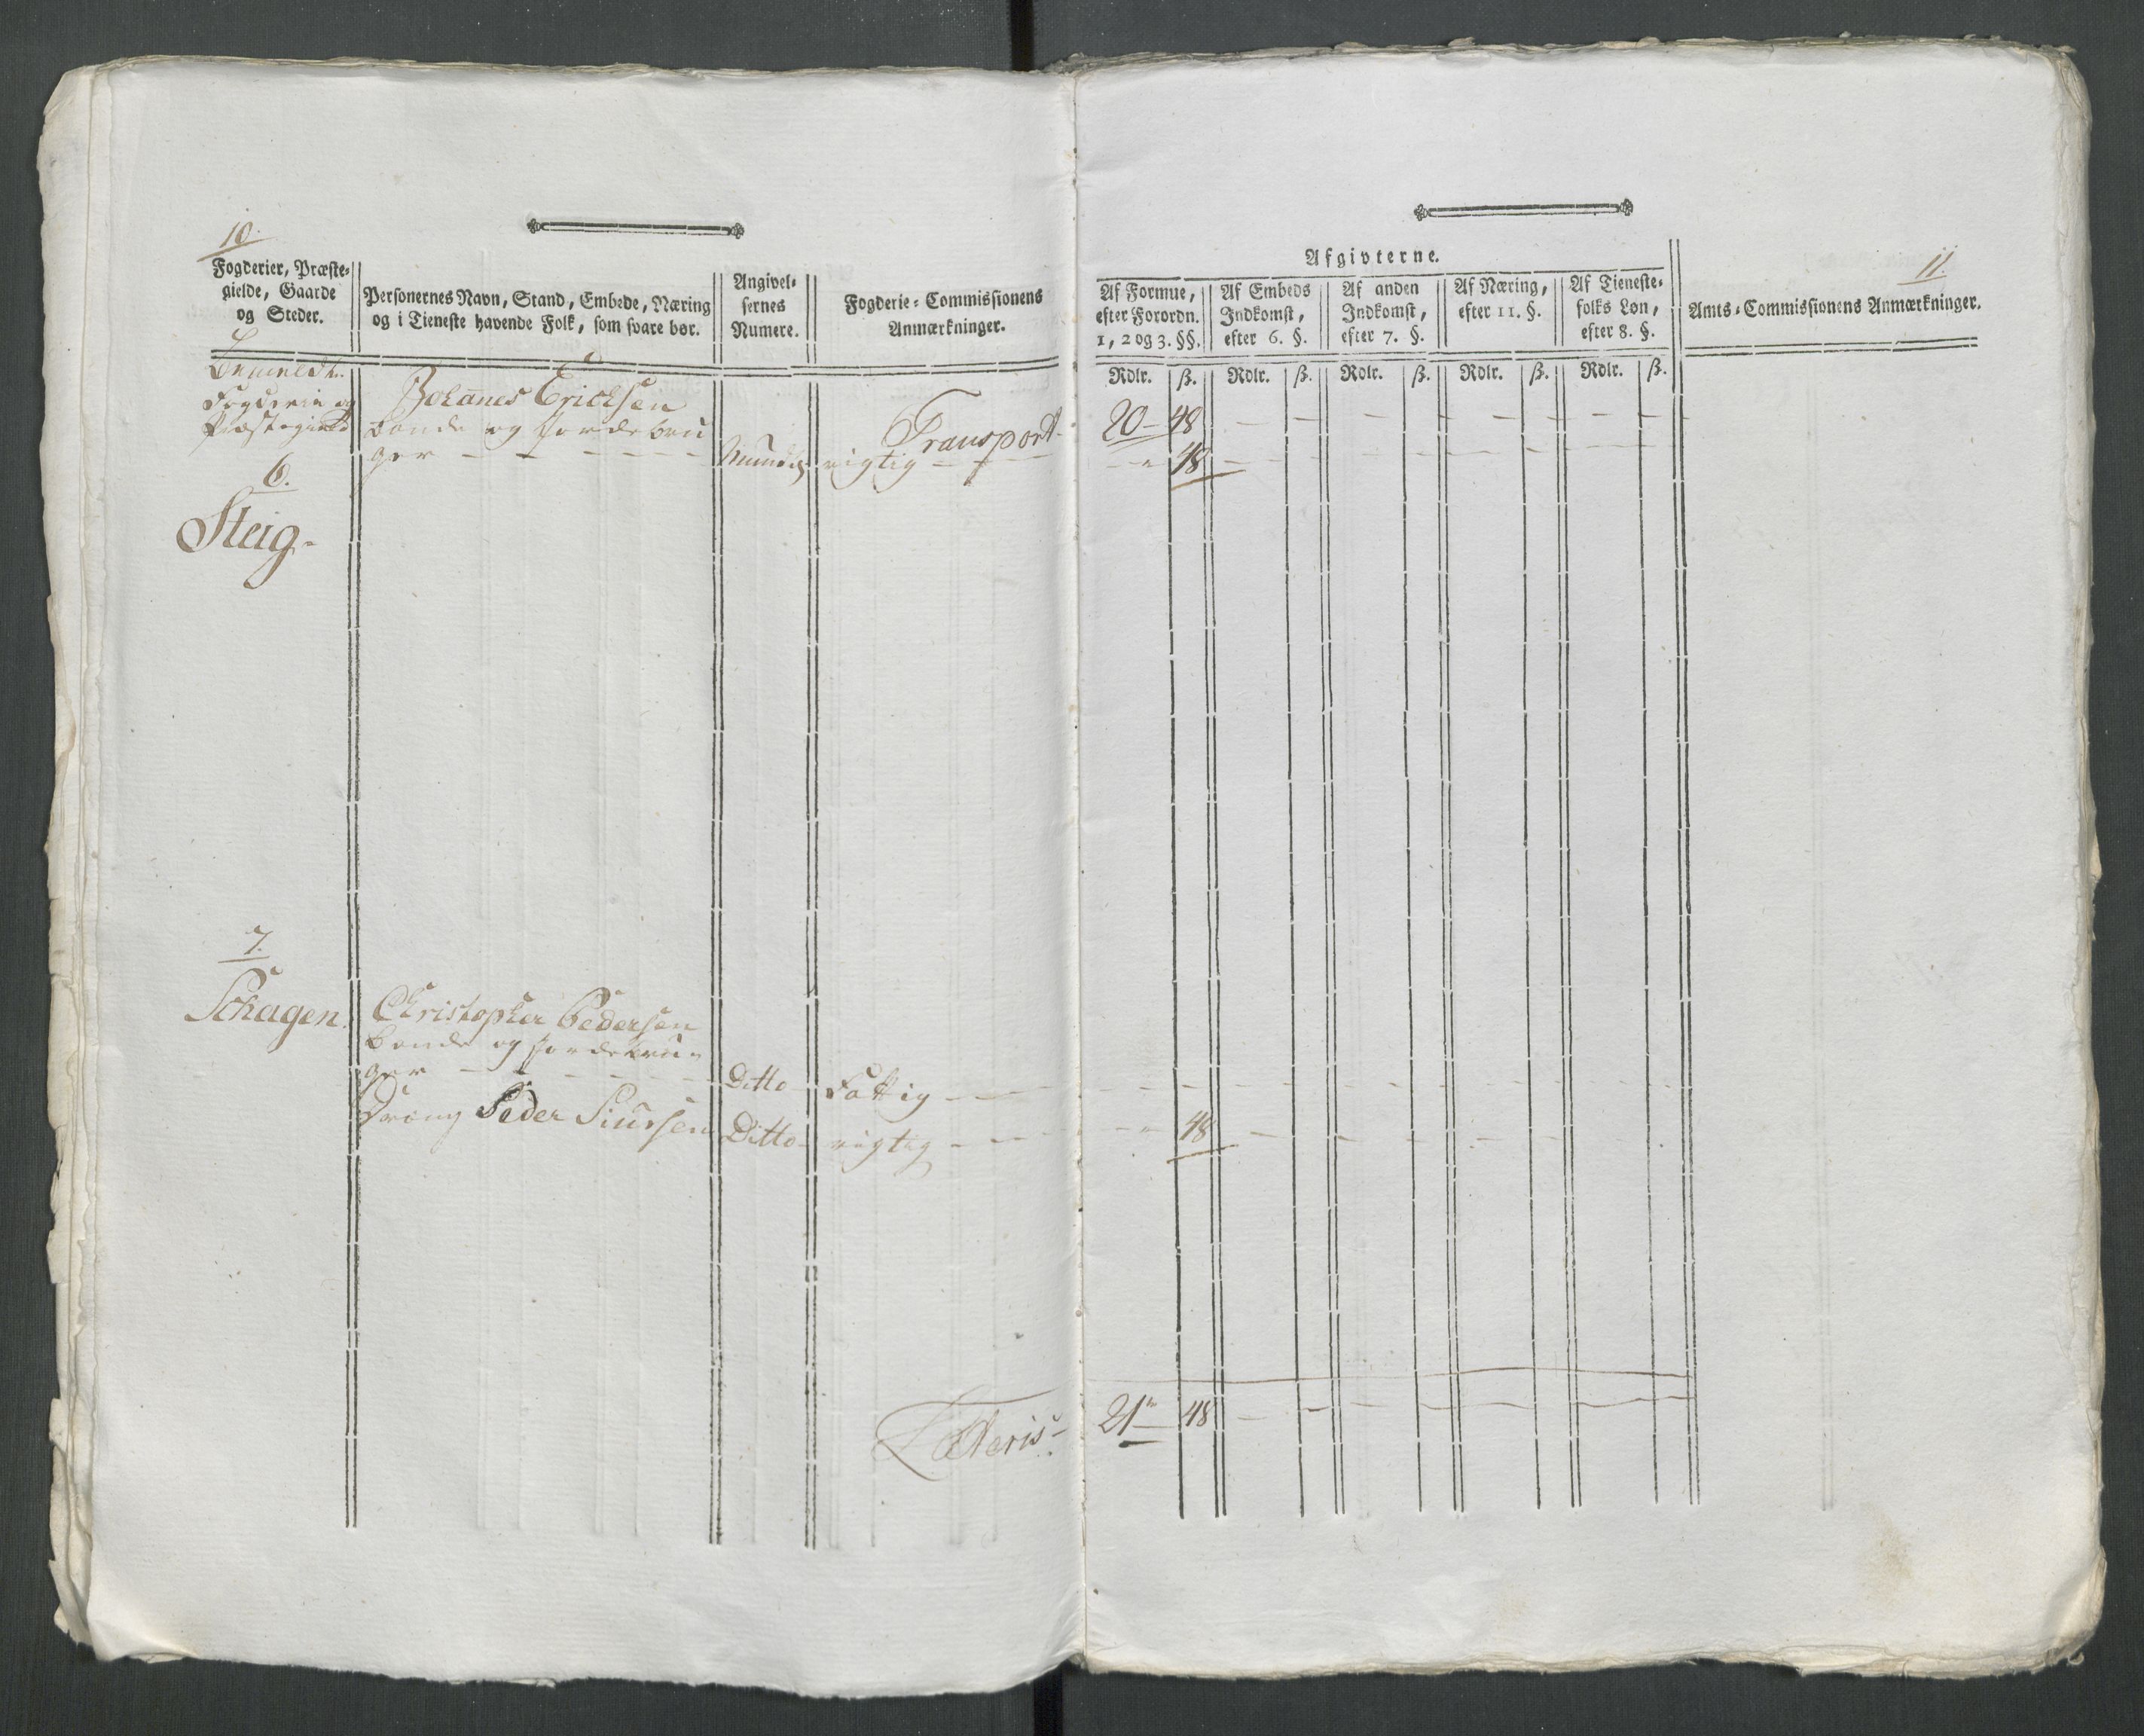 10.
Fogderier, Præste-
gielde, Gaarde
og Steder.
Personernes Navn, Stand, Embede, Næring
og i Tieneste havende Folk, som svare bør.
Angivel-
sernes
Numere.
Fogderie-Commissionens
Anmærkninger.
Bemeldte
Fogderie og
Præstegield
6.
Steig-
Johanes Ericksen
bonde og Jordebru
ger - - - - - -
Mundtl.
Transport
rigtig - - -
7.
Schagen.
Christopher Pedersen
bonde og Jordebru-
ger - - - - - -
Ditto
Fattig - -
Dreng Peder Siursen
Ditto
rigtig - -
Lateris
11.
Afgivterne.
Af Formue,
efter Forordn.
1, 2 og 3. §§.
Af Embeds
Indkomst,
efter 6. §.
Af anden
Indkomst,
efter 7. §.
Af Næring,
efter 11. §.
Af Tieneste-
folks Løn,
efter 8. §.
Amts-Commissionens Anmærkninger.
Rdlr. ß. Rdlr. ß. Rdlr. ß. Rdlr. ß. Rdlr. ß.
20 - 48 - - - - - - - -
- " 48 - - - - - - - -
- - - - - - - - - -
- " 48 - - - - - - - -
21 " 48 - - - - - - - -